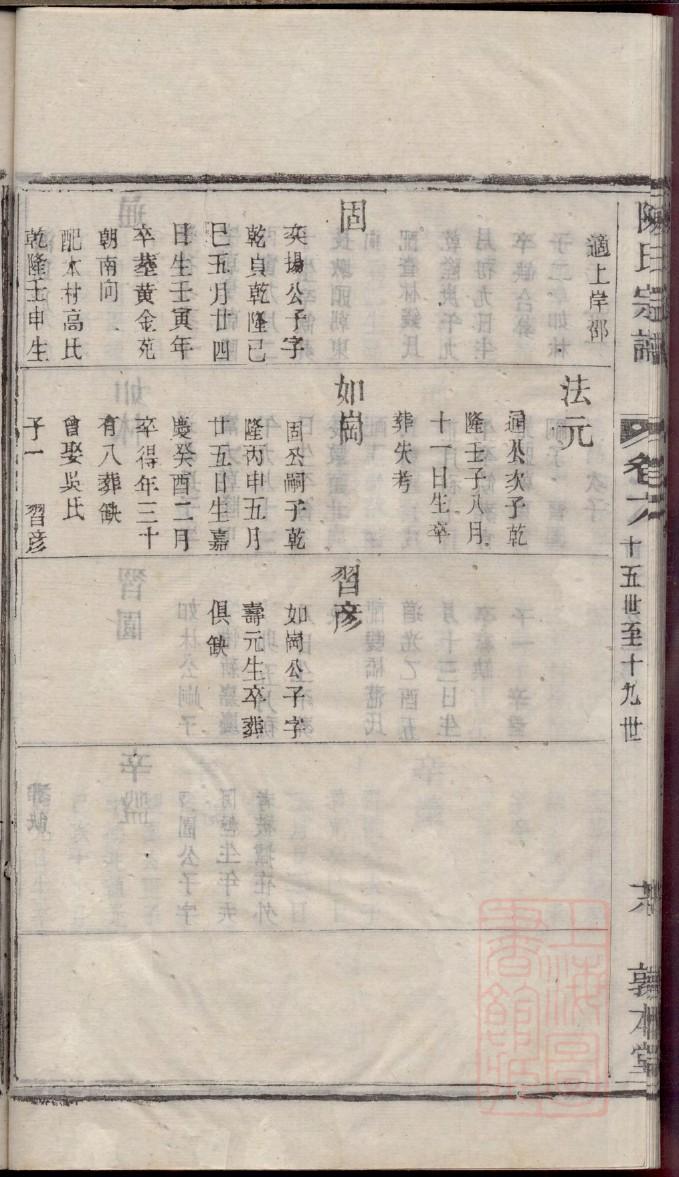 適上岸邵
固
奕揚公子字
乾貞乾隆己
巳五月廿四
日生壬寅年
卒塟黄金苑
朝南向
配本村高氏
乾隆壬申生
法元
通公次子乾
隆壬子八月
十一日生卒
葬失考
如崗
固公嗣子乾
隆丙申五月
廿五日生嘉
慶癸酉二月
卒得年三十
有八葬缺
曾娶吳氏
子一 習彦
習彦
如崗公子字
壽元生卒葬
俱缺
氏宗譜
卷六
十五世至十九世
敦本堂
上海圖書館藏